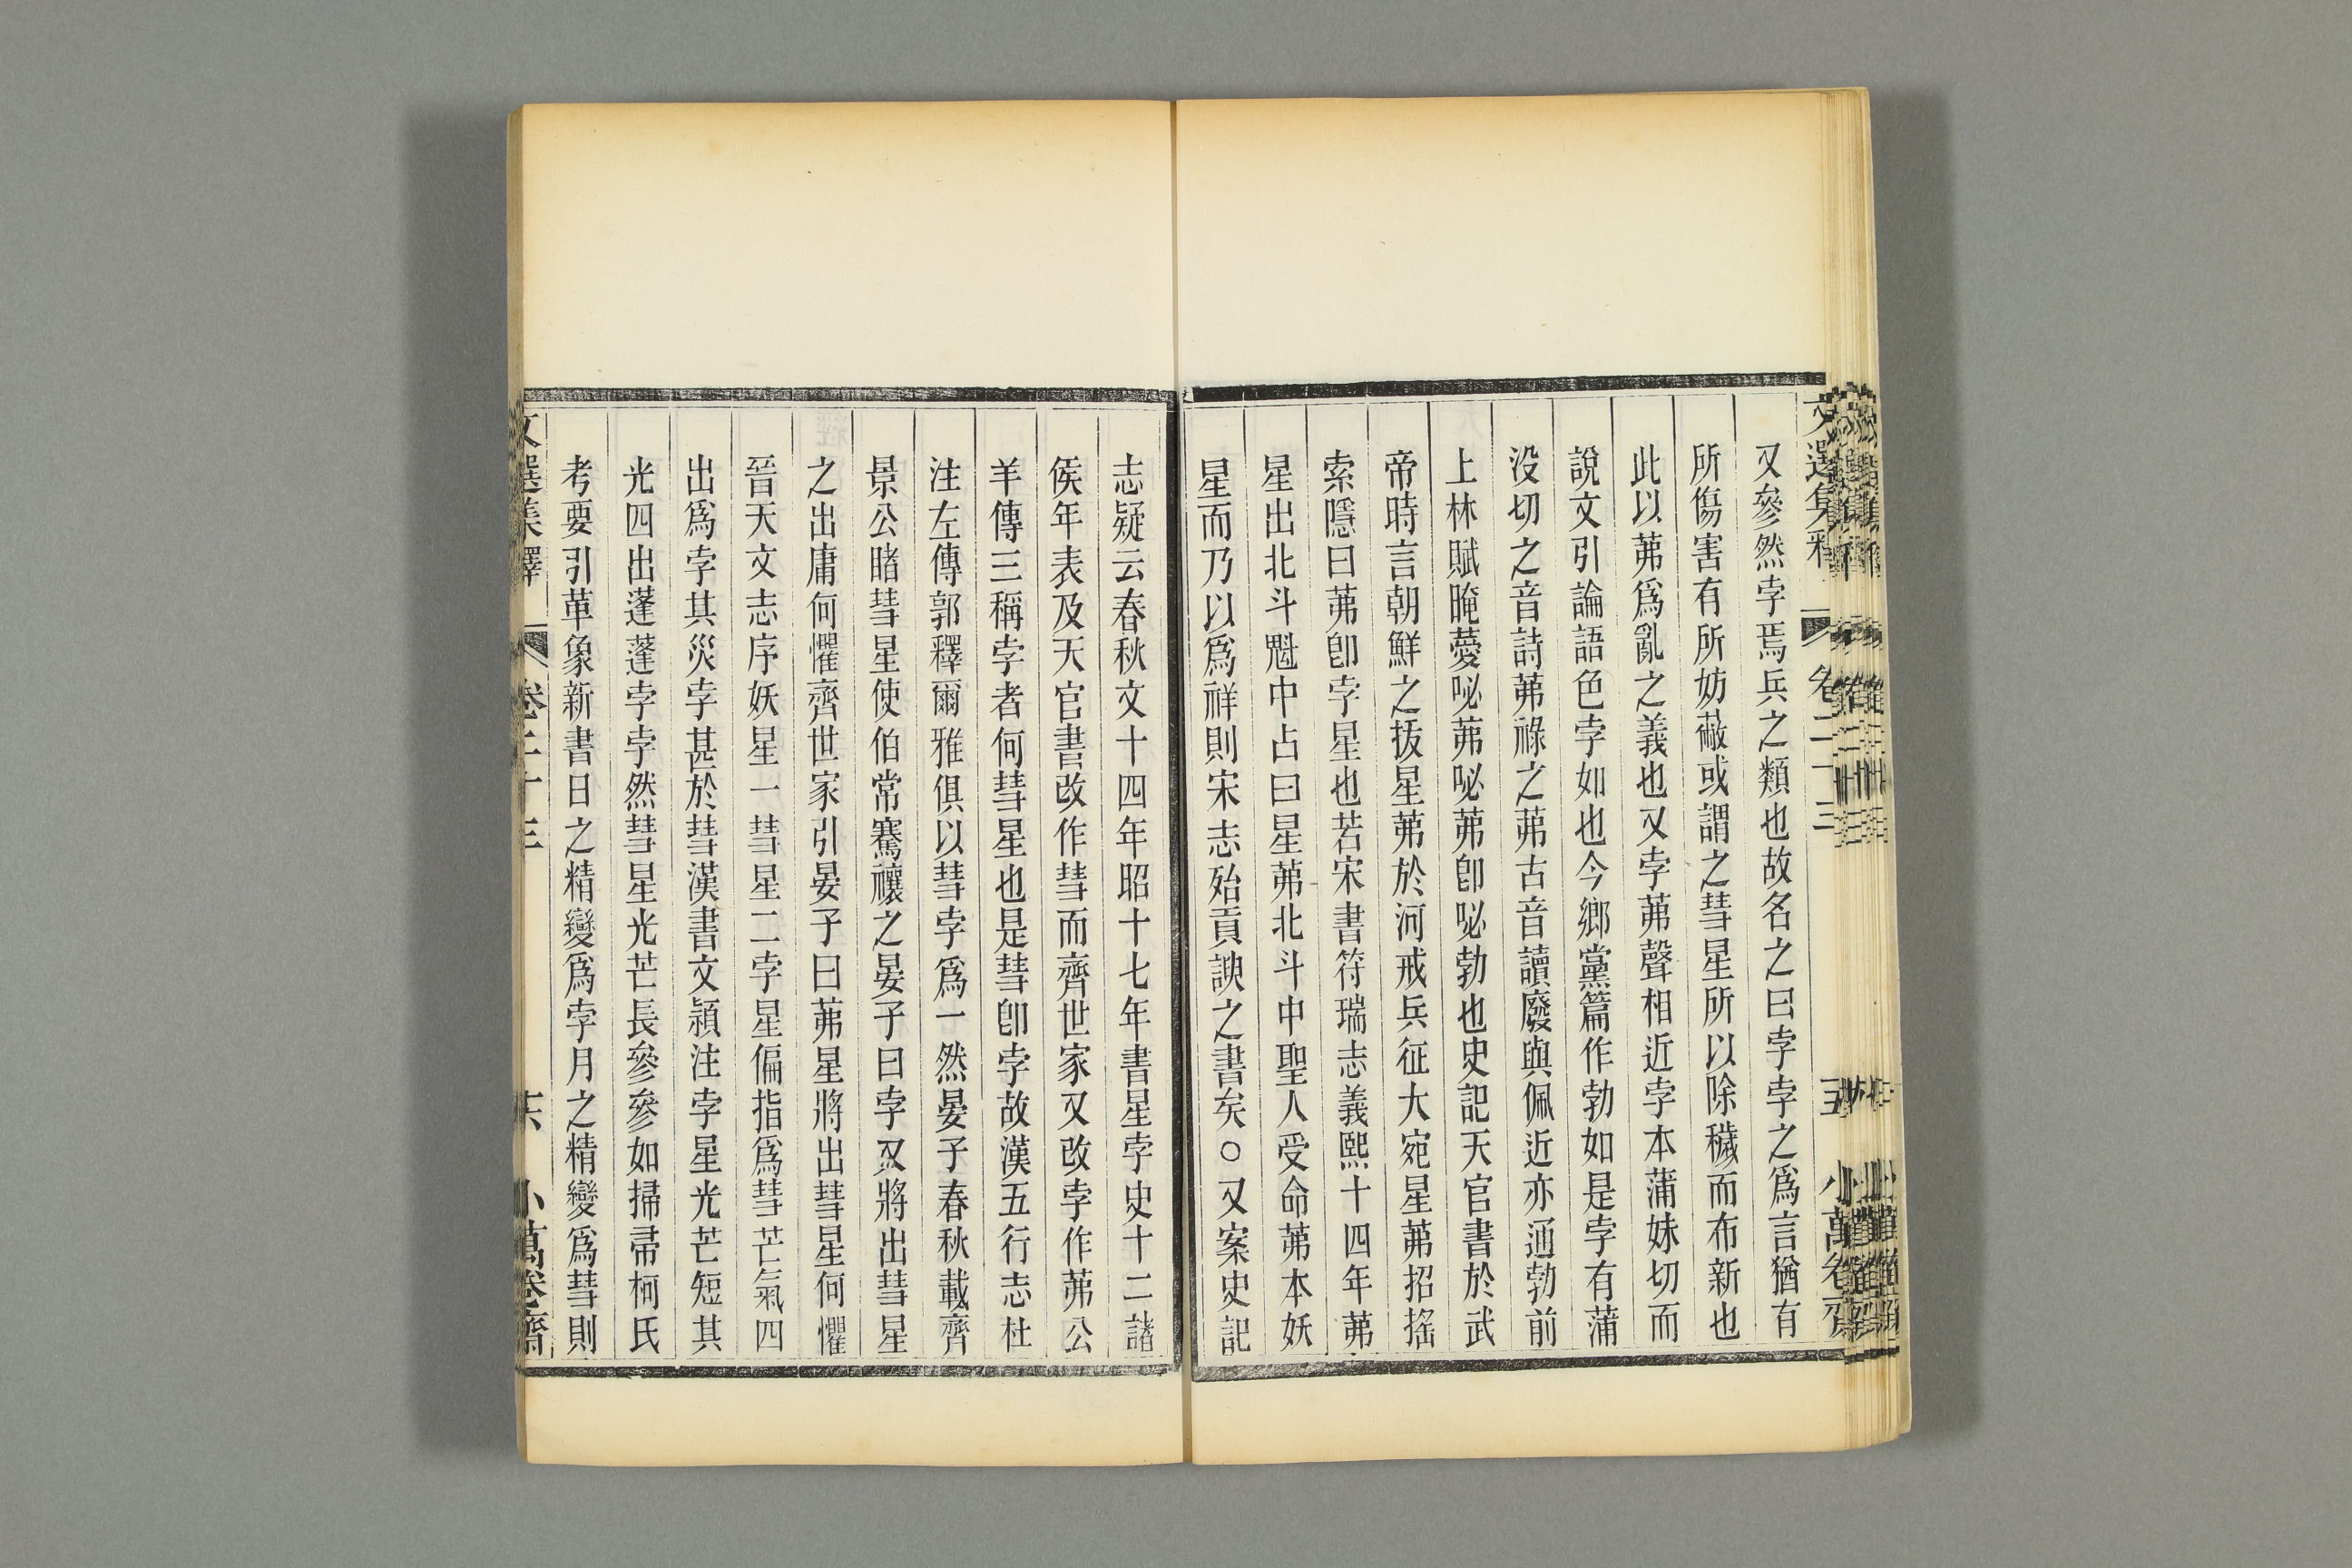 又參然孛焉兵之類也故名之曰孛孛之爲言猶有
所傷害有所妨蔽或謂之彗星所以除穢而布新也
此以茀爲亂之義也又孛茀聲相近孛本蒲妹切而
說文引論語色孛如也今鄉黨篇作勃如是孛有蒲
没切之音詩茀祿之茀古音讀廢與佩近亦通勃前
上林賦晻薆咇茀咇茀卽咇勃也史記天官書於武
帝時言朝鮮之拔星茀於河戒兵征大宛星茀招搖
索隱曰茀卽孛星也若宋書符瑞志義熙十四年茀
星出北斗魁中占曰星茀北斗中聖人受命茀本妖
星而乃以爲祥則宋志殆貢諛之書矣○又案史記
志疑云春秋文十四年昭十七年書星孛史十二諸
侯年表及天官書改作彗而齊世家又改孛作茀公
羊傳三稱孛者何彗星也是彗卽孛故漢五行志杜
注左傳郭釋爾雅俱以彗孛爲一然晏子春秋載齊
景公睹彗星使伯常騫禳之晏子曰孛又將出彗星
之出庸何懼齊世家引晏子曰茀星將出彗星何懼
晉天文志序妖星一彗星二孛星偏指爲彗芒氣四
出爲孛其災孛甚於彗漢書文潁注孛星光芒短其
光四出蓬蓬孛孛然彗星光芒長參參如掃帚柯氏
考要引革象新書日之精變爲孛月之精變爲彗則
文選集釋 卷二十三 小萬卷齋